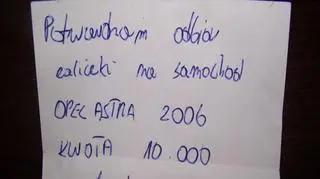 Potwierdzam odbiór
zaliczki na samochód
OPEL ASTRA 2006
KWOTA 10.000